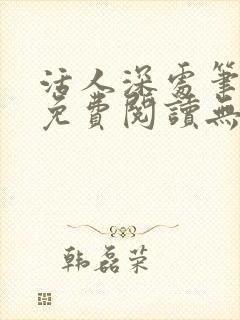 活人深處筆
免費閱讀無
韩磊荣